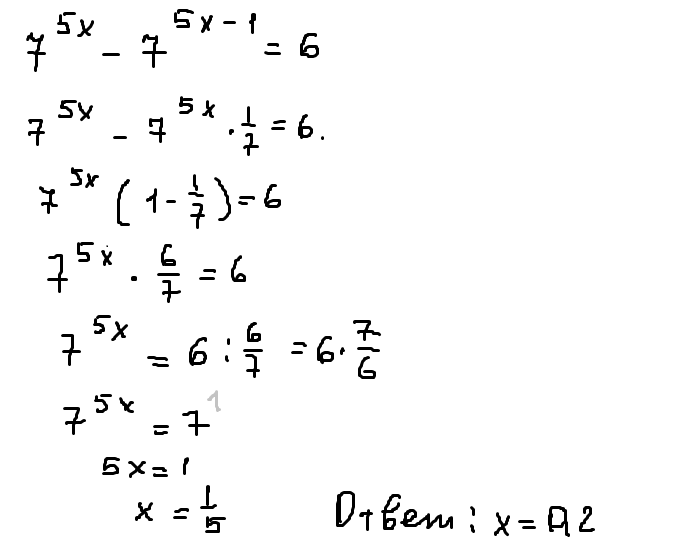 7^(5x) - 7^(5x-1) = 6
7^(5x) - 7^(5x) · 1/7 = 6.
7^(5x) (1 - 1/7) = 6
7^(5x) · 6/7 = 6
7^(5x) = 6 : 6/7 = 6 · 7/6
7^(5x) = 7^1
5x = 1
x = 1/5
Ответ: x = 0,2